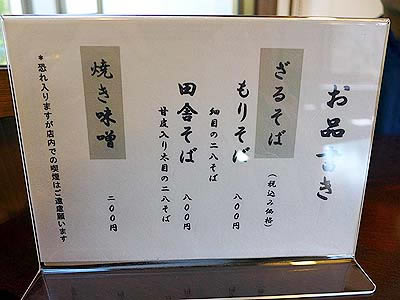 お品書き
ざるそば
(税込み価格)
もりそば 八〇〇円
細目の二八そば
田舎そば 八〇〇円
甘皮入り太目の二八そば
焼き味噌 二〇〇円
*恐れ入りますが店内での喫煙はご遠慮願います